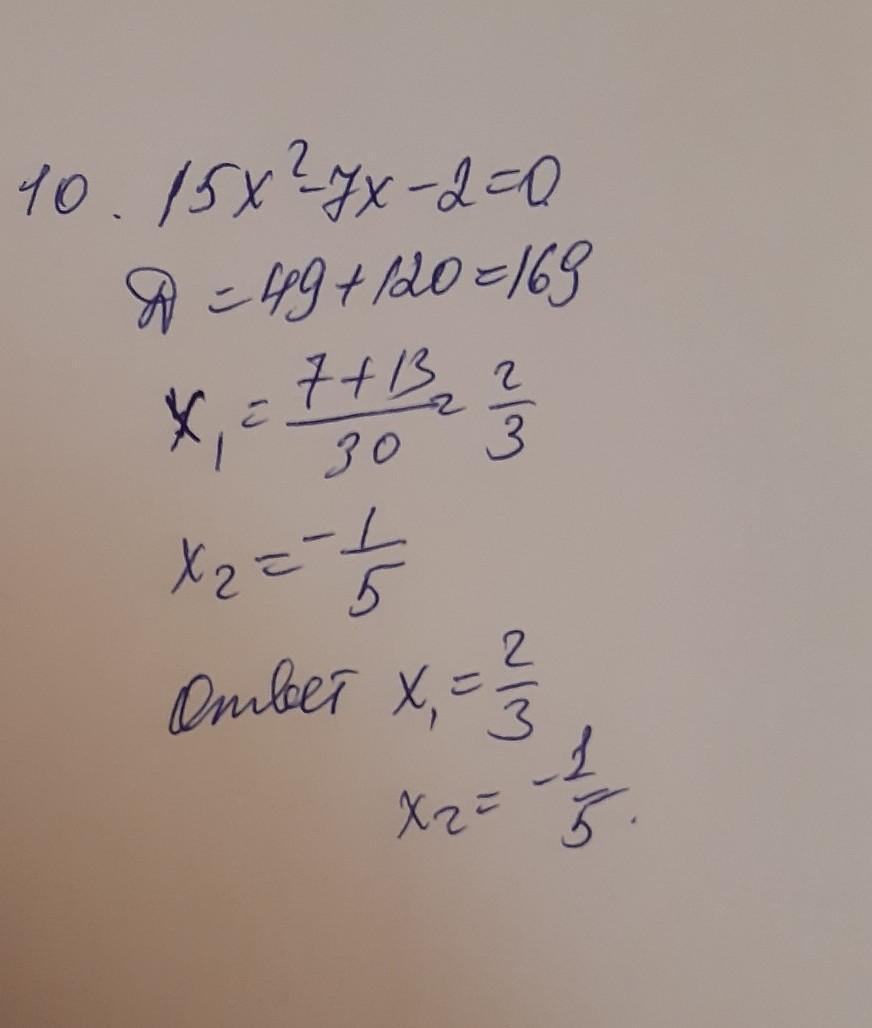 10. 15x²-7x-2=0
Д=49+120=169
x₁=\frac{7+13}{30}=\frac{2}{3}
x₂=-\frac{1}{5}
Ответ x₁=\frac{2}{3}
x₂=-\frac{1}{5}.